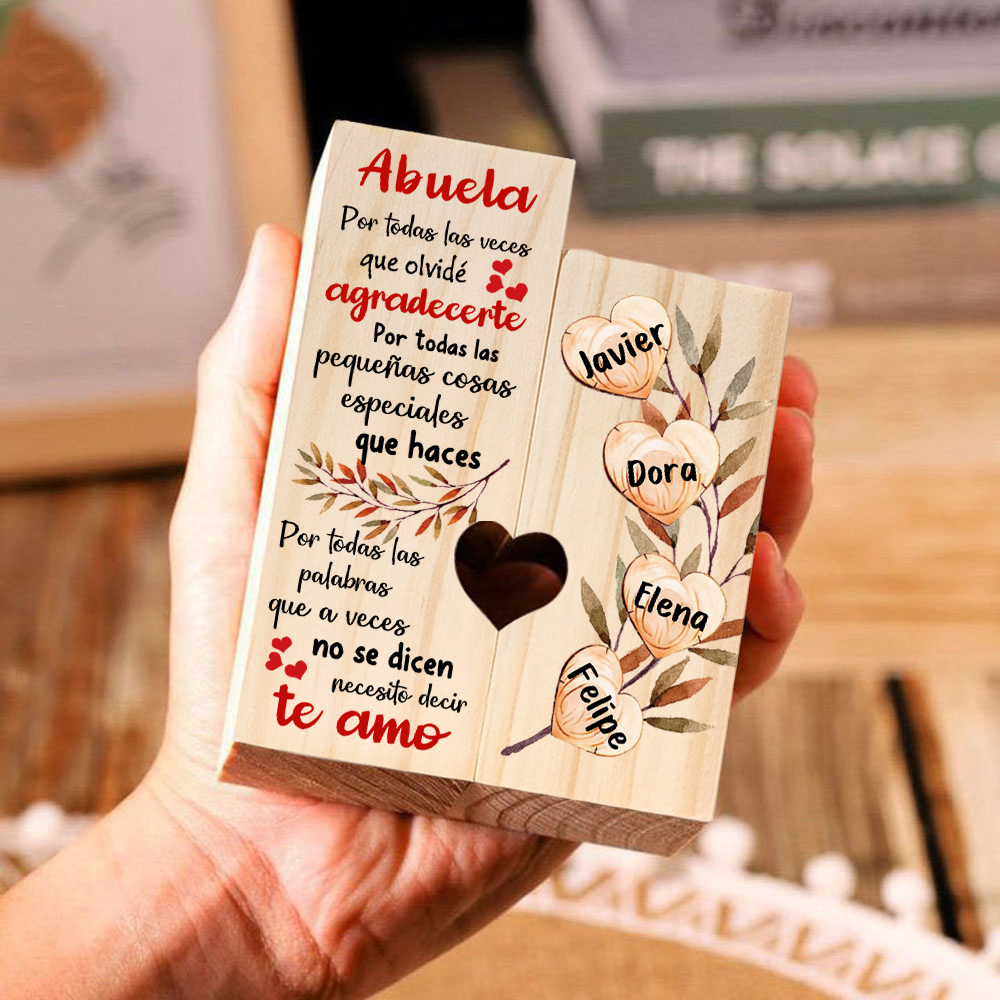 Abuela
Por todas las veces
que olvidé
agradecerte
Por todas las
pequeñas cosas
especiales
que haces
Por todas las
palabras
que a veces
no se dicen
necesito decir
te amo
Javier
Dora
Elena
Felipe
THE SOLACE